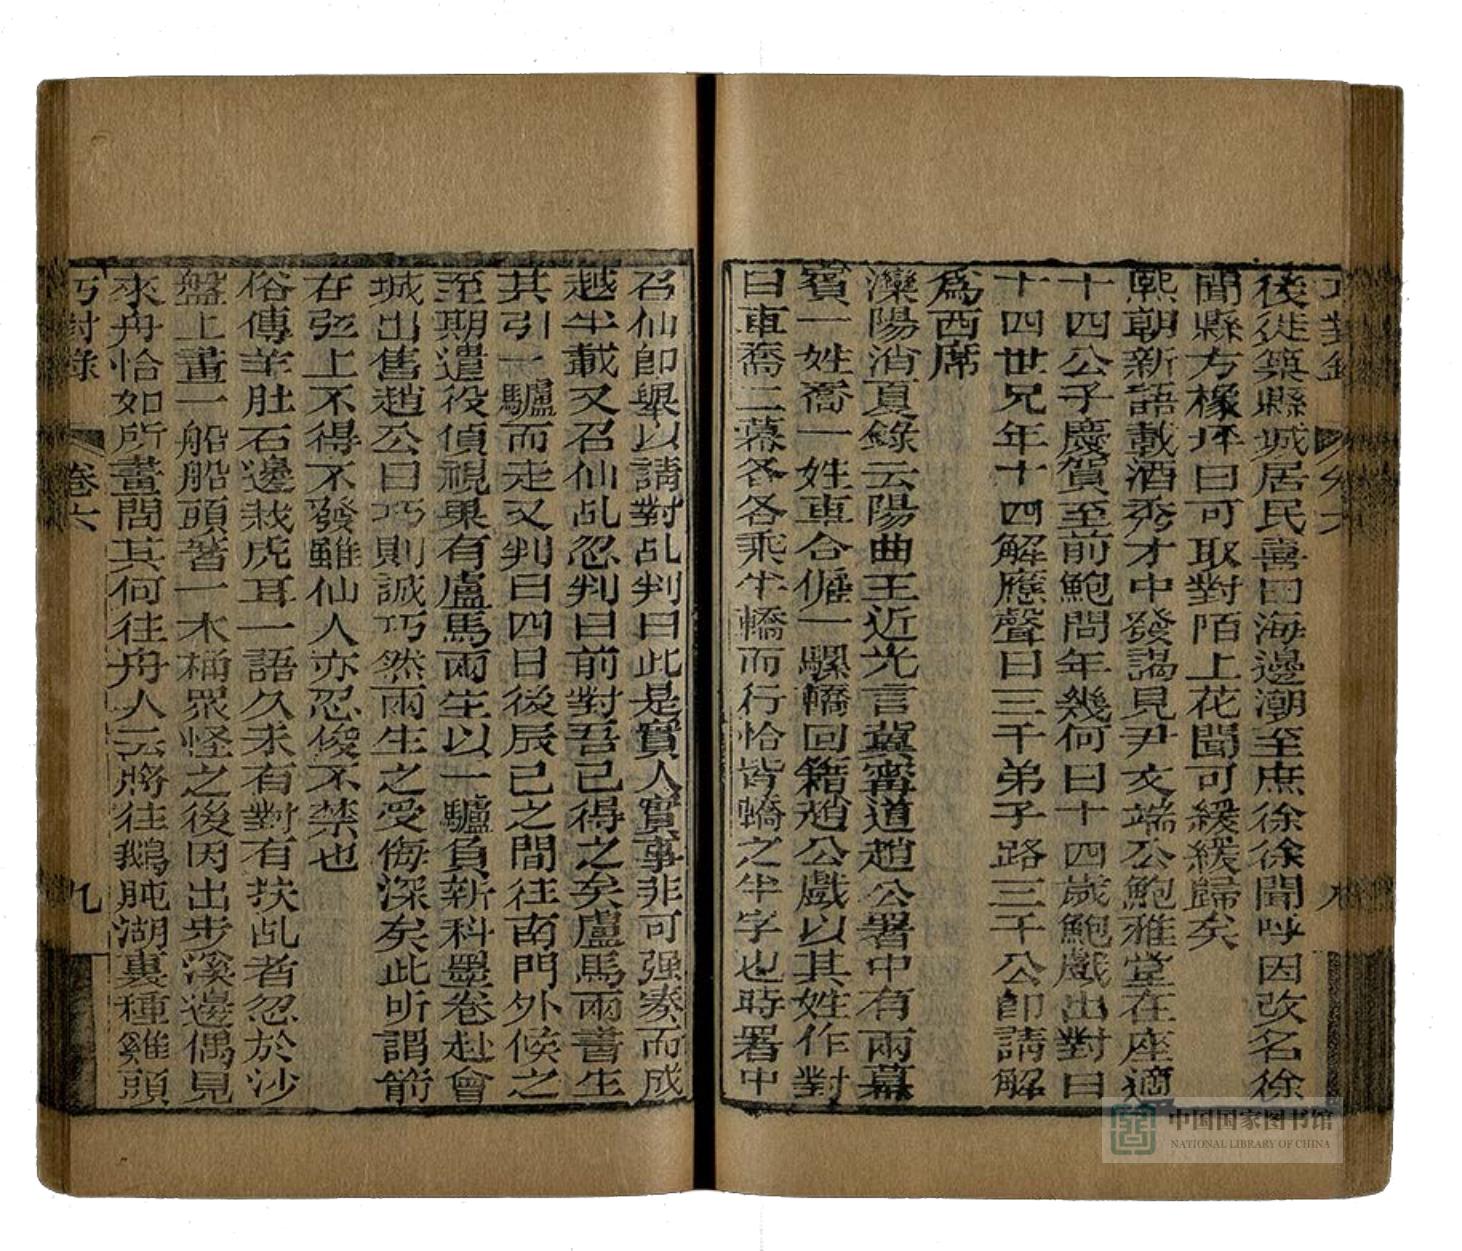 後徙築縣城居民喜曰海邊潮至庶徐徐聞呼因改名徐
聞縣方橡坪曰可取對陌上花開可緩緩歸矣
熙朝新語載酒秀才中發謁見尹文端公鮑雅堂在座適
十四公子慶賀至前鮑問年幾何曰十四歲鮑戲出對曰
十四世兄年十四解應聲曰三千弟子路三千公卽請解
爲西席
灤陽消夏錄云陽曲王近光言冀寗道趙公署中有兩幕
賓一姓喬一姓車合僱一騾轎回籍趙公戲以其姓作對
曰車喬二幕各各乘半轎而行恰皆轎之半字也時署中
召仙卽舉以請對乩判曰此是實人實事非可强湊而成
越半載又召仙乩忽判曰前對吾已得之矣盧馬兩書生
其引一驢而走又判曰四日後辰巳之間往南門外候之
至期遣役偵視果有盧馬兩生以一驢負新科墨卷赴會
城出售趙公曰巧則誠巧然兩生之受侮深矣此所謂箭
在弦上不得不發雖仙人亦忍俊不禁也
俗傳羊肚石邊栽虎耳一語久未有對有扶乩者忽於沙
盤上畫一船船頭著一木桶眾怪之後因出步溪邊偶見
來舟恰如所畫問其何往舟人云將往鵝肫湖裏種雞頭
巧對錄
卷六
九
中国国家图书馆
NATIONAL LIBRARY OF CHINA